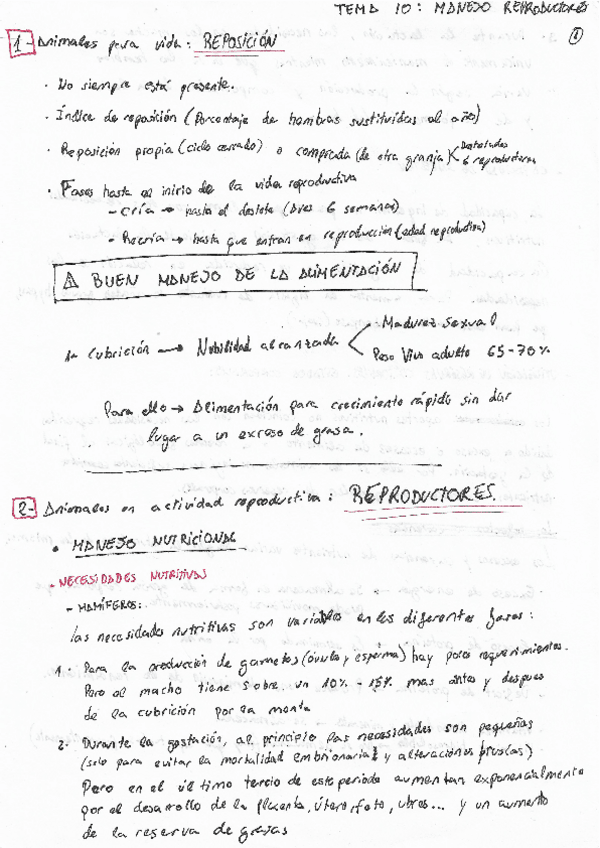 TEMA 10: MANEJO REPRODUCTORES
1
1- Animales para vida: REPOSICIÓN
· No siempre está presente.
· Índice de reposición (Porcentaje de hembras sustituidas al año)
· Reposición propia (ciclo cerrado) o comprada (de otra granja) < Destetados
6 reproductoras
· Fases hasta el inicio de la vida reproductiva
- Cría → hasta el destete (aves 6 semanas)
- Recría → hasta que entran en reproducción (edad reproductiva)
⚠ BUEN MANEJO DE LA ALIMENTACIÓN
1ª Cubrición → Nubilidad alcanzada < Madurez sexual
Peso Vivo adulto 65-70%
Para ello → Alimentación para crecimiento rápido sin dar
lugar a un exceso de grasa.
2- Animales en actividad reproductiva: REPRODUCTORES.
· MANEJO NUTRICIONAL
- NECESIDADES NUTRITIVAS
- MAMÍFEROS:
las necesidades nutritivas son variables en las diferentes fases:
1- Para la producción de gametos (óvulos y esperma) hay pocos requerimientos.
Pero el macho tiene sobre un 10% - 15% mas antes y despues
de la cubrición por la monta
2- Durante la gestación, al principio las necesidades son pequeñas
(solo para evitar la mortalidad embrionaria y alteraciones bruscas)
Pero en el último tercio de este periodo aumentan exponencialmente
por el desarrollo de la placenta, útero, feto, ubres... y un aumento
de la reserva de grasas